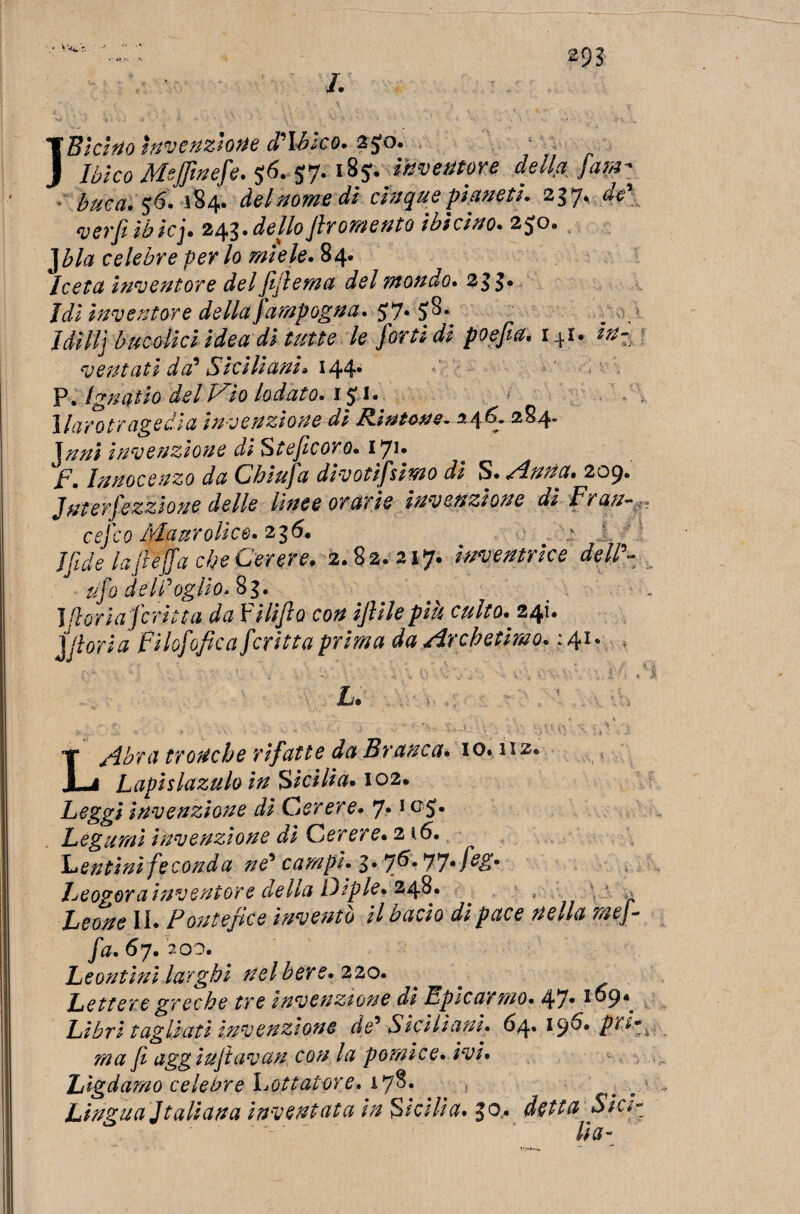 293
I.
IBicino invenzione d'Ibico. 250.
Ibico Messinese. 56. 57. 185. inventore della sam-
buca. 56. 184. del nome di cinque pianeti. 237. de'
versi ibicj. 243. dello stromento ibicino. 250.
Ibla celebre per lo miele. 84.
Iceta inventore del sistema del mondo. 233.
Idi inventore della sampogna. 57. 58.
Idillj bucolici idea di tutte le sorti di poesia. 141. in-
ventati da' Siciliani. 144.
P. Ignatio del Vio lodato. 151.
Ilarotragedia invenzione di Rintone. 246. 284.
Inni invenzione di Steficoro. 171.
F. Innocenzo da Chiusa divotissimo di S. Anna. 209.
Interfezzione delle linee orarie invenzione di Fran-
cesco Maurolico. 236.
Iside la stessa che Cerere. 2. 82. 217. inventrice dell'-
uso dell'oglio. 83.
Istoria scritta da Filisto con istile più culto. 241.
Istoria Filosofica scritta prima da Archetimo. :41.
L.
LAbra tronche rifatte da Branca. 10. 112.
Lapislazulo in Sicilia. 102.
Leggi invenzione di Cerere. 7. 105.
Legumi invenzione di Cerere. 216.
Lentini feconda ne' campi. 3. 76. 77. seg.
Leogora inventore della Diple. 248.
Leone II. Pontefice inventò il bacio di pace nella mes-
sa. 67. 200.
Leontini larghi nel bere. 220.
Lettere greche tre invenzione di Epicarmo. 47. 169.
Libri tagliati invenzione de' Siciliani. 64. 196. pri-
ma si aggiustavan con la pomice. ivi.
Ligdamo celebre Lottatore. 178.
Lingua Italiana inventata in Sicilia. 30. detta Sici-
lia-